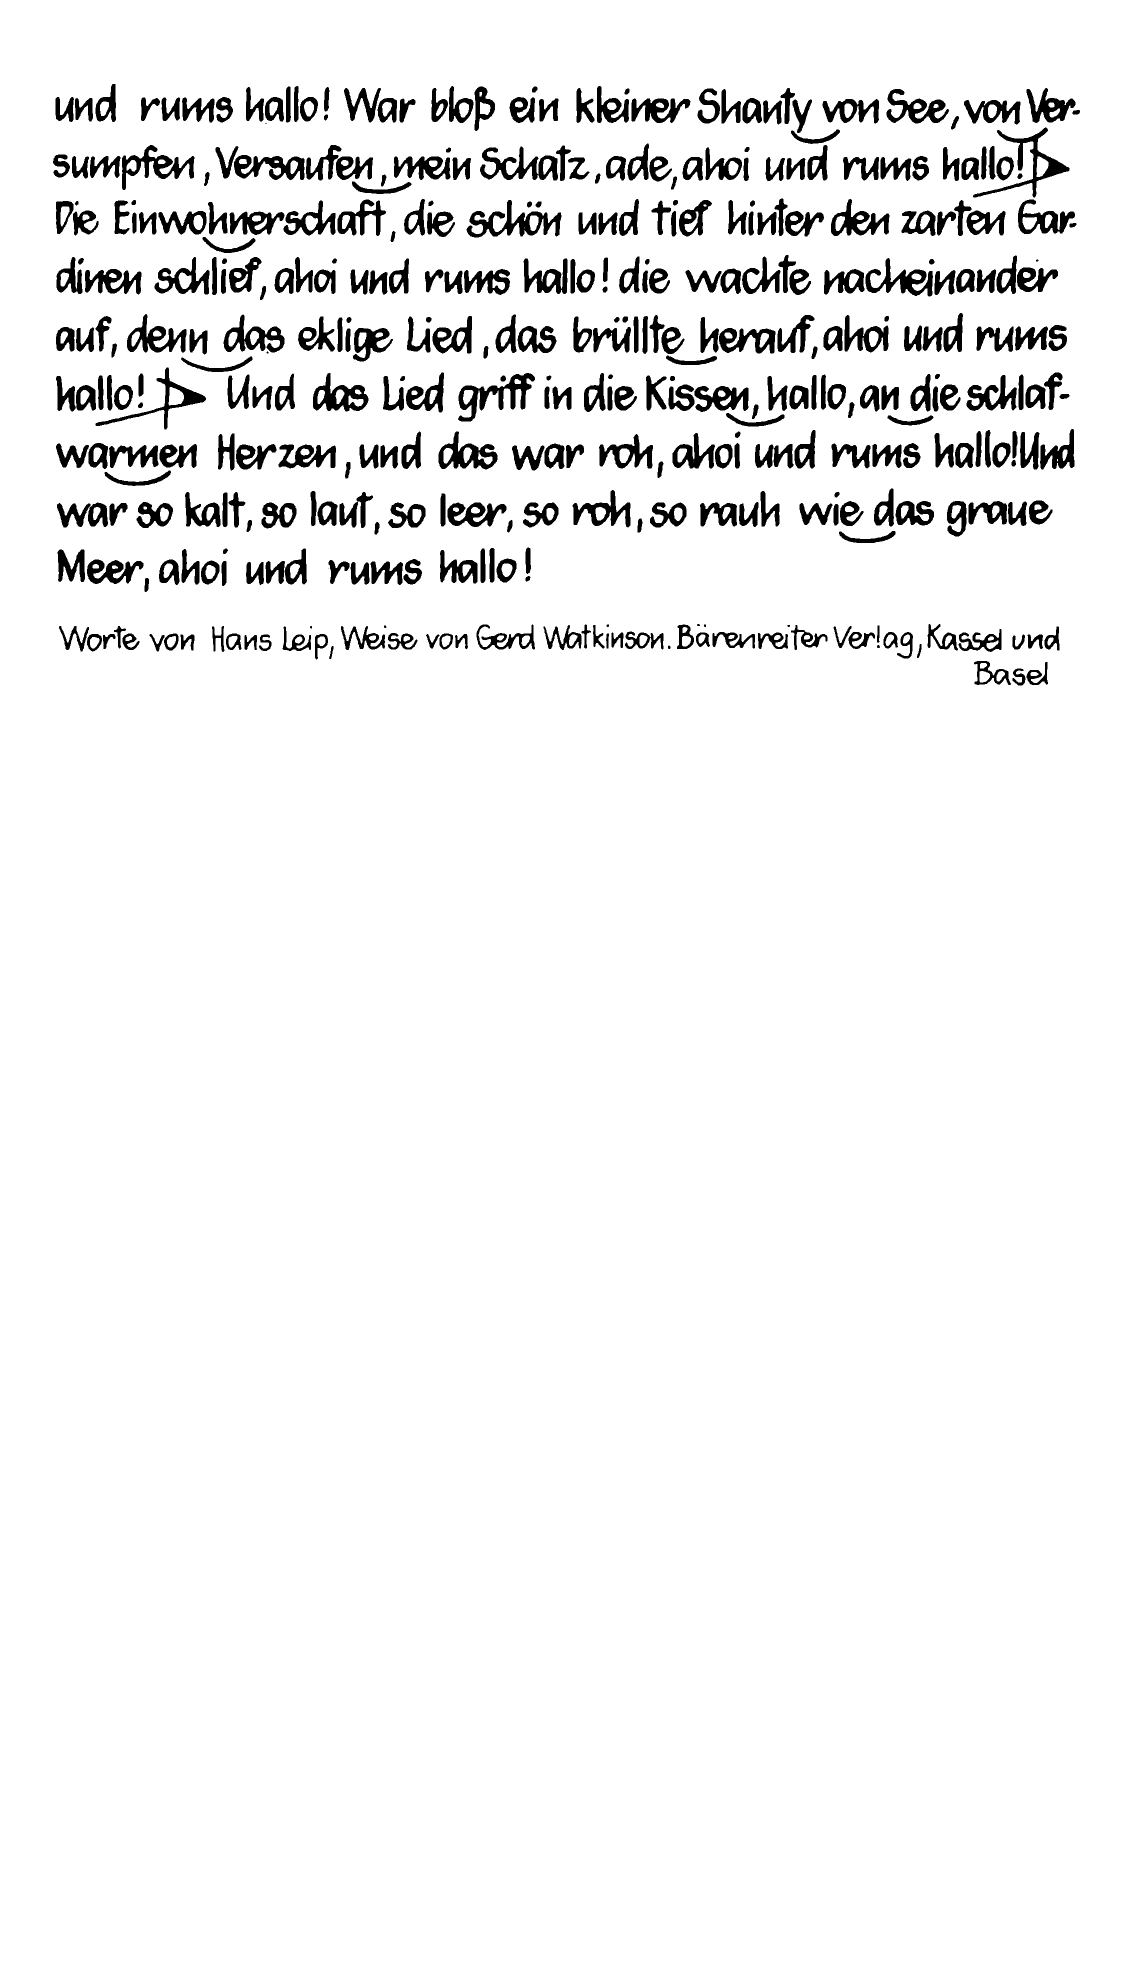 und rums hallo! War bloß ein kleiner Shanty von See, von Ver-
sumpfen, Versaufen, mein Schatz, ade, ahoi und rums hallo!
Die Einwohnerschaft, die schön und tief hinter den zarten Gar-
dinen schlief, ahoi und rums hallo! die wachte nacheinander
auf, denn das eklige Lied, das brüllte herauf, ahoi und rums
hallo! Und das Lied griff in die Kissen, hallo, an die schlaf-
warmen Herzen, und das war roh, ahoi und rums hallo! Und
war so kalt, so laut, so leer, so roh, so rauh wie das graue
Meer, ahoi und rums hallo!
Worte von Hans Leip, Weise von Gerd Watkinson. Bärenreiter Verlag, Kassel und
Basel